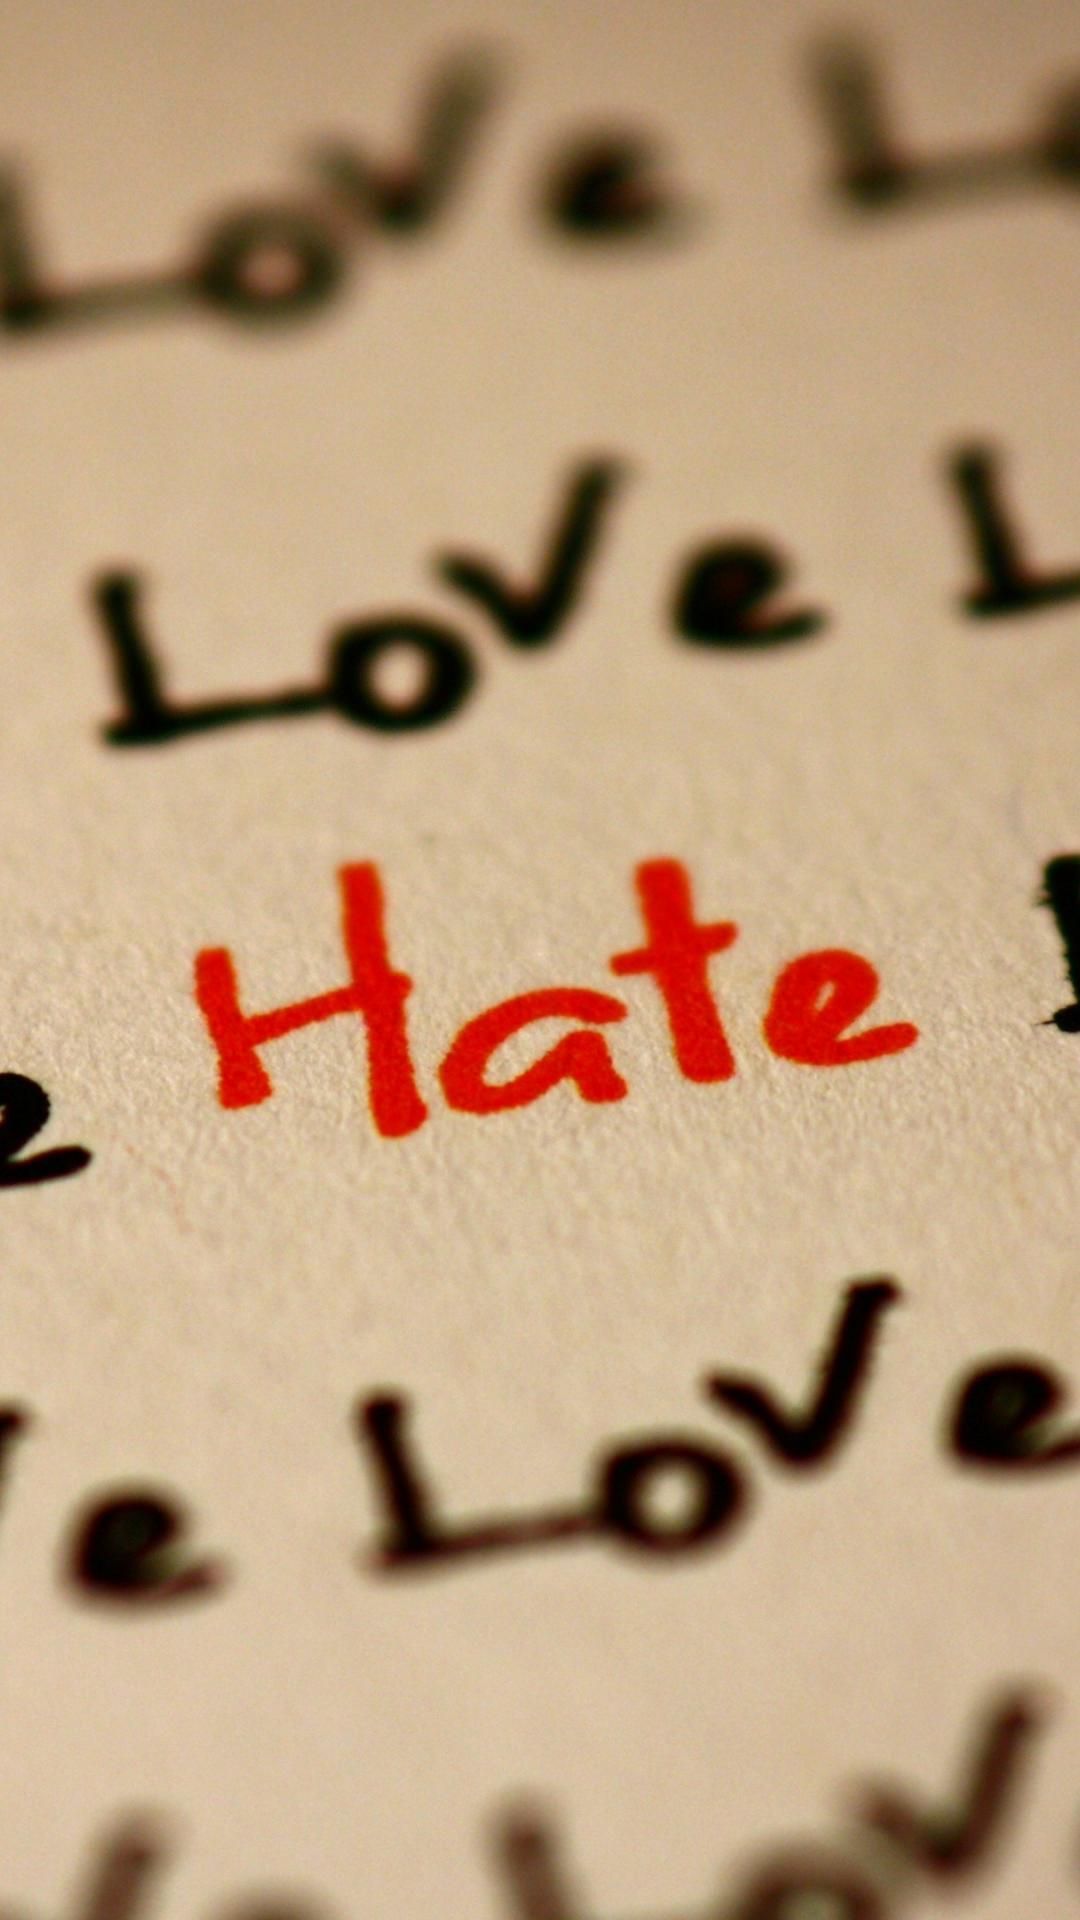 Love Lo
Love L
e Hate L
ve Love
Lov